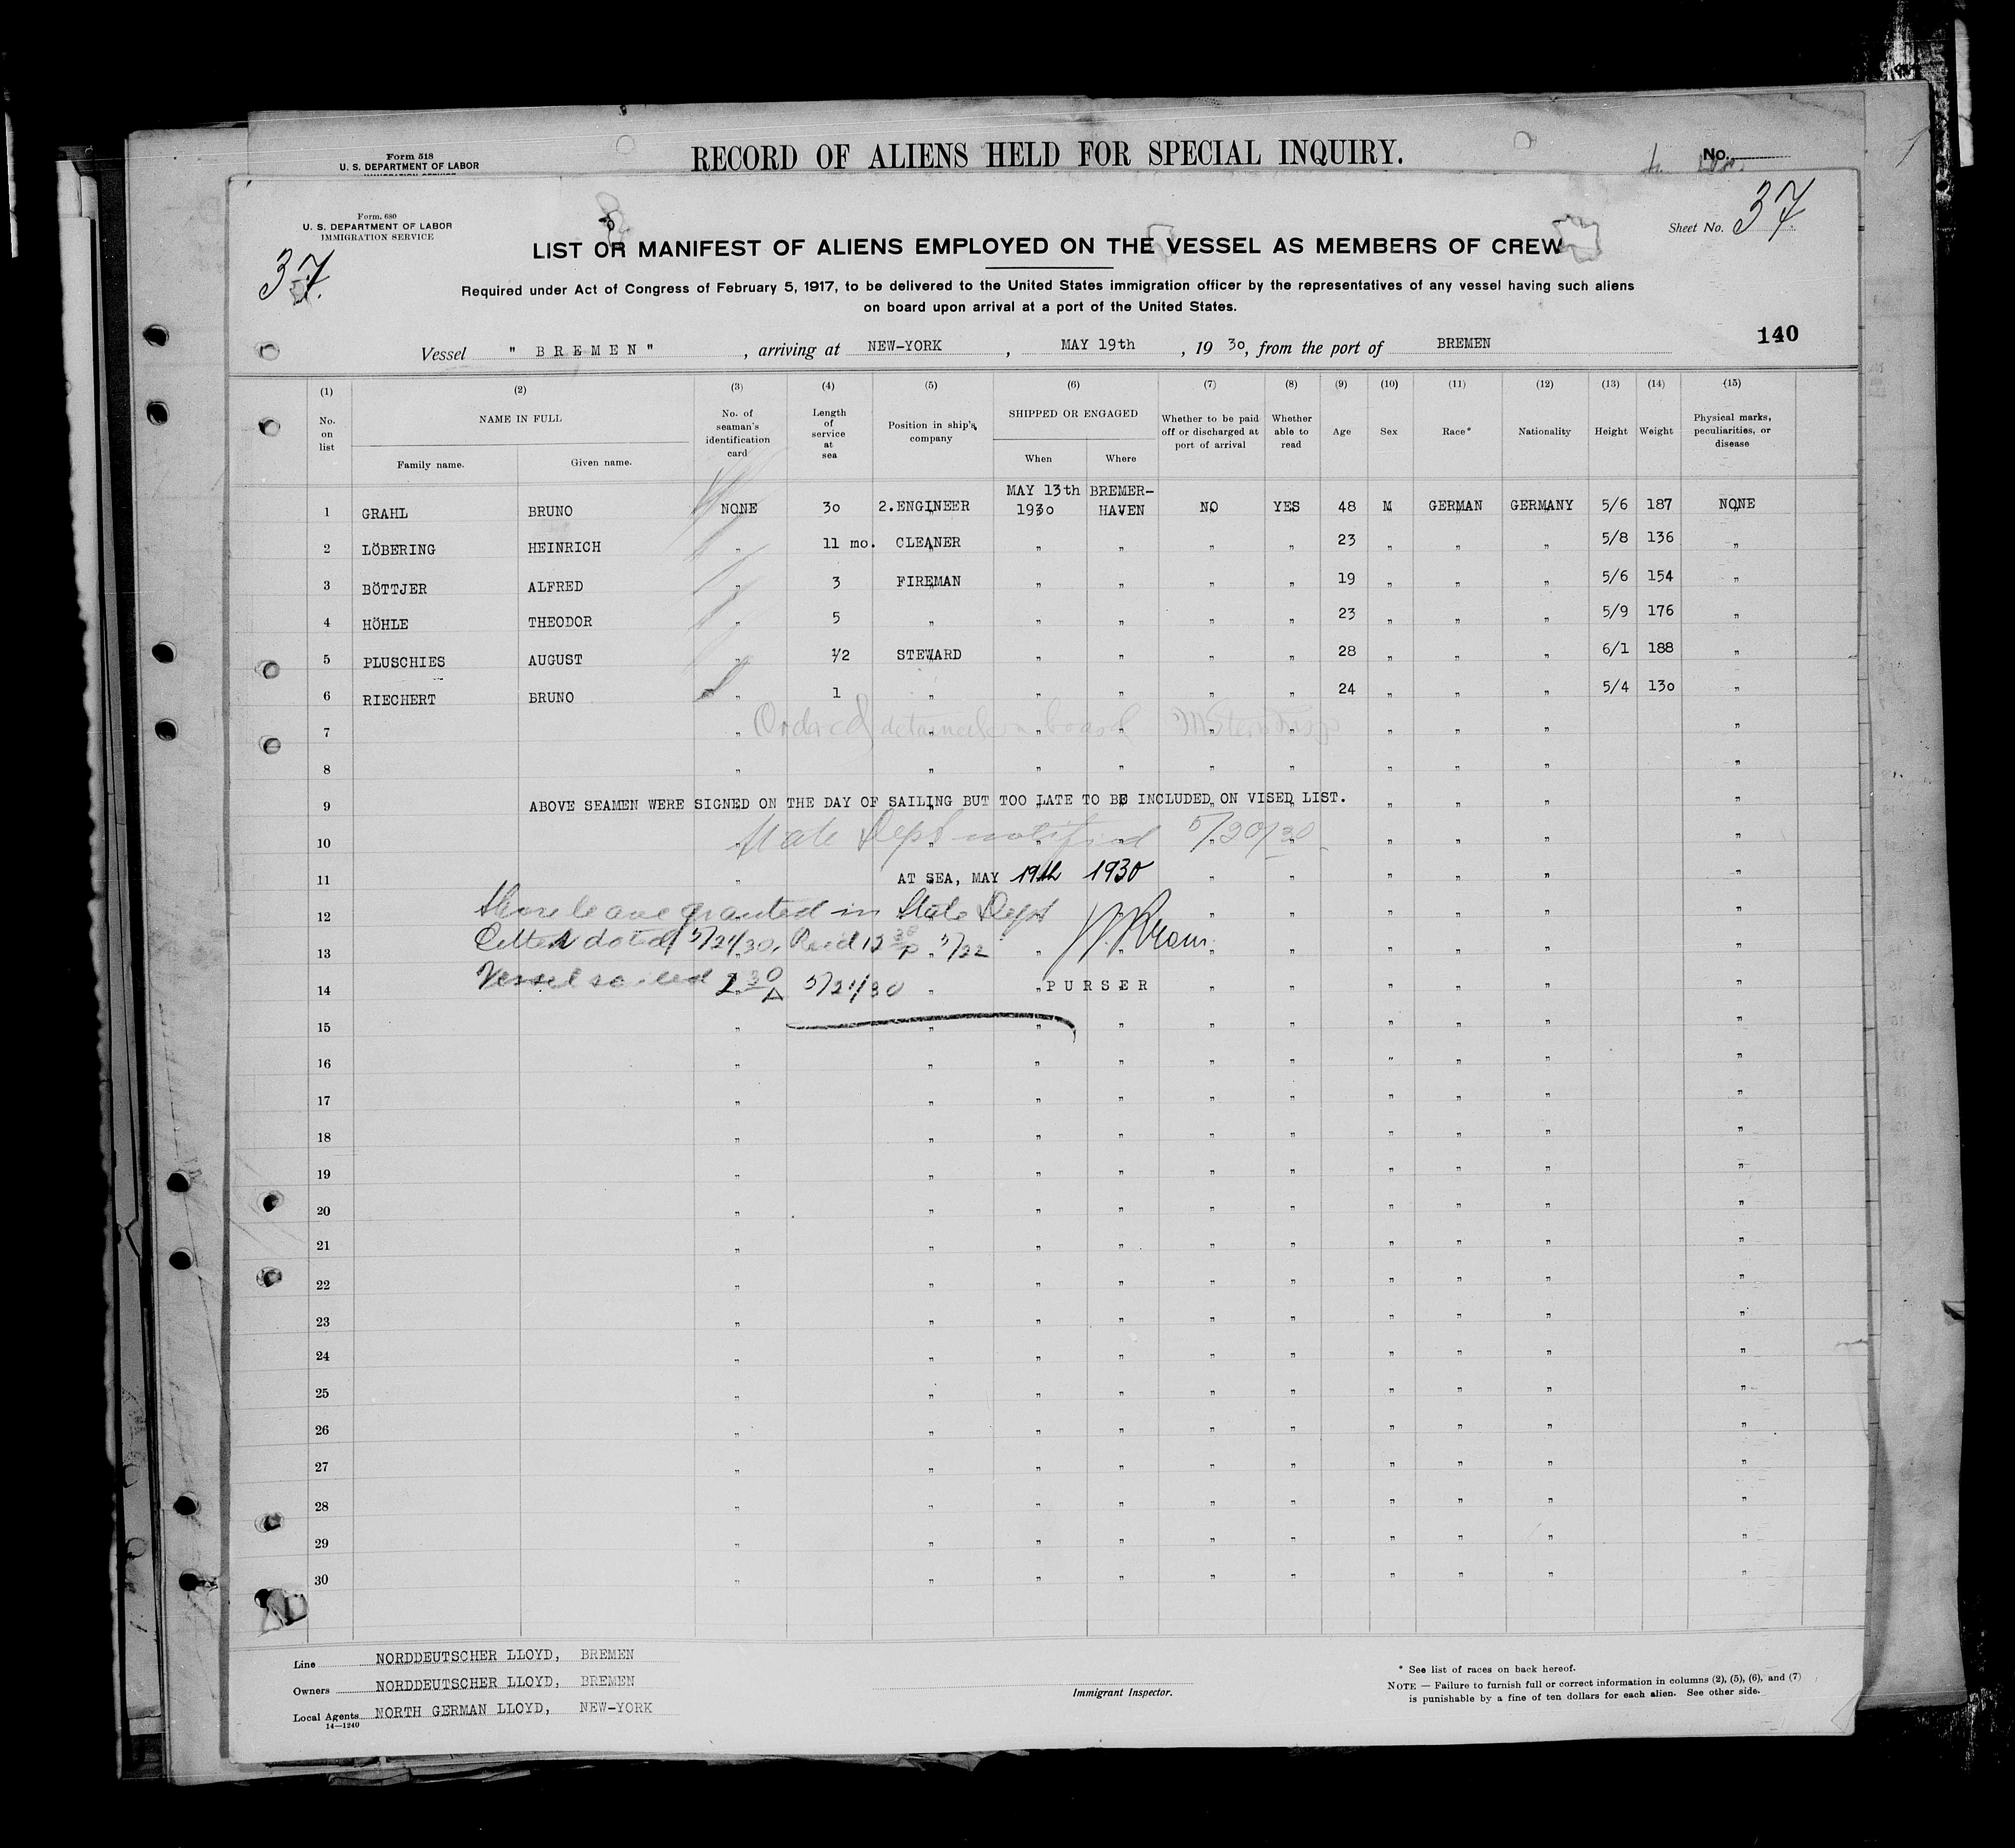 Form 518
U. S. DEPARTMENT OF LABOR
RECORD OF ALIENS HELD FOR SPECIAL INQUIRY.
No.
Form. 680
U. S. DEPARTMENT OF LABOR
IMMIGRATION SERVICE
37.
Sheet No. 37.
LIST OR MANIFEST OF ALIENS EMPLOYED ON THE VESSEL AS MEMBERS OF CREW
Required under Act of Congress of February 5, 1917, to be delivered to the United States immigration officer by the representatives of any vessel having such aliens
on board upon arrival at a port of the United States.
140
Vessel " BREMEN " , arriving at NEW-YORK , MAY 19th , 19 30, from the port of BREMEN
(1) (2) (3) (4) (5) (6) (7) (8) (9) (10) (11) (12) (13) (14) (15)
No. on list NAME IN FULL Family name. Given name. No. of seaman's identification card Length of service at sea Position in ship's company SHIPPED OR ENGAGED When Where Whether to be paid off or discharged at port of arrival Whether able to read Age Sex Race* Nationality Height Weight Physical marks, peculiarities, or disease
1 GRAHL BRUNO NONE 30 2.ENGINEER MAY 13th 1930 BREMER-HAVEN NO YES 48 M GERMAN GERMANY 5/6 187 NONE
2 LÖBERING HEINRICH " 11 mo. CLEANER " " " " 23 " " " 5/8 136 "
3 BÖTTJER ALFRED " 3 FIREMAN " " " " 19 " " " 5/6 154 "
4 HÖHLE THEODOR " 5 " " " " " 23 " " " 5/9 176 "
5 PLUSCHIES AUGUST " 1/2 STEWARD " " " " 28 " " " 6/1 188 "
6 RIECHERT BRUNO " 1 " " " " " 24 " " " 5/4 130 "
7 Ordered detained on board
8
9 ABOVE SEAMEN WERE SIGNED ON THE DAY OF SAILING BUT TOO LATE TO BE INCLUDED ON VISED LIST.
10 State Dept notified 5/20/30
11 AT SEA, MAY 19th 1930
12 Shore leave granted in State Dept
13 Letter dated 5/21/30, Rec'd 12 30 P 5/22
14 Vessel sailed 1 30 A 5/21/30 PURSER
15
16
17
18
19
20
21
22
23
24
25
26
27
28
29
30
Line NORDDEUTSCHER LLOYD, BREMEN
Owners NORDDEUTSCHER LLOYD, BREMEN
Local Agents NORTH GERMAN LLOYD, NEW-YORK
14—1240
Immigrant Inspector.
* See list of races on back hereof.
NOTE — Failure to furnish full or correct information in columns (2), (5), (6), and (7)
is punishable by a fine of ten dollars for each alien. See other side.